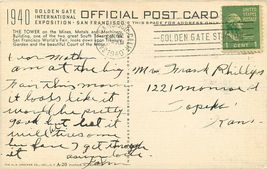 1940 GOLDEN GATE INTERNATIONAL EXPOSITION · SAN FRANCISCO OFFICIAL POST CARD
THE TOWER on the Mines, Metals and Machinery
Building, one of the two great South Towers of the
San Francisco World's Fair, looks down upon
Garden and the beautiful Court of the Moon.
GOLDEN GATE
1 CENT 1
Dear Mother
am at the big
Fair this morn
it looks like it
would be pretty
good but
will tire some
before I get through
it
Mrs Frank Phillips
1221 Monroe St
Topeka
Kans
A-20